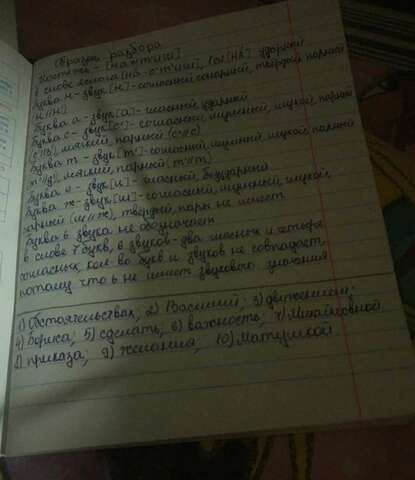 Образец разбора
[на с'т'иш]
В слове 2 слога [на-с'т'иш], 1ый [на] ударный
Буква н - звук [н] - согласный сонорный, твёрдый парный
(н//н')
Буква а - звук [а] - гласный ударный
Буква с - звук [с'] - согласный шумный, глухой, парный
мягкий, парный (с'//с)
Буква т - звук [т'] - согласный шумный глухой парный
мягкий, парный (т'//т)
Буква е - звук [и] - гласный, безударный
Буква ж - звук [ш] - согласный, шумный, глухой,
парный (ш//ж), твёрдый, пары не имеет
Буква ь звука не обозначает
В слове 7 букв, 6 звуков - два гласных и четыре
согласных, кол-во букв и звуков не совпадает,
потому что ь не имеет звукового значения
1) Обстоятельствах; 2) Василий; 3) движением;
4) Бориса; 5) сделать; 6) важность; 7) Михайловной
8) приказа; 9) желания; 10) Матушкой